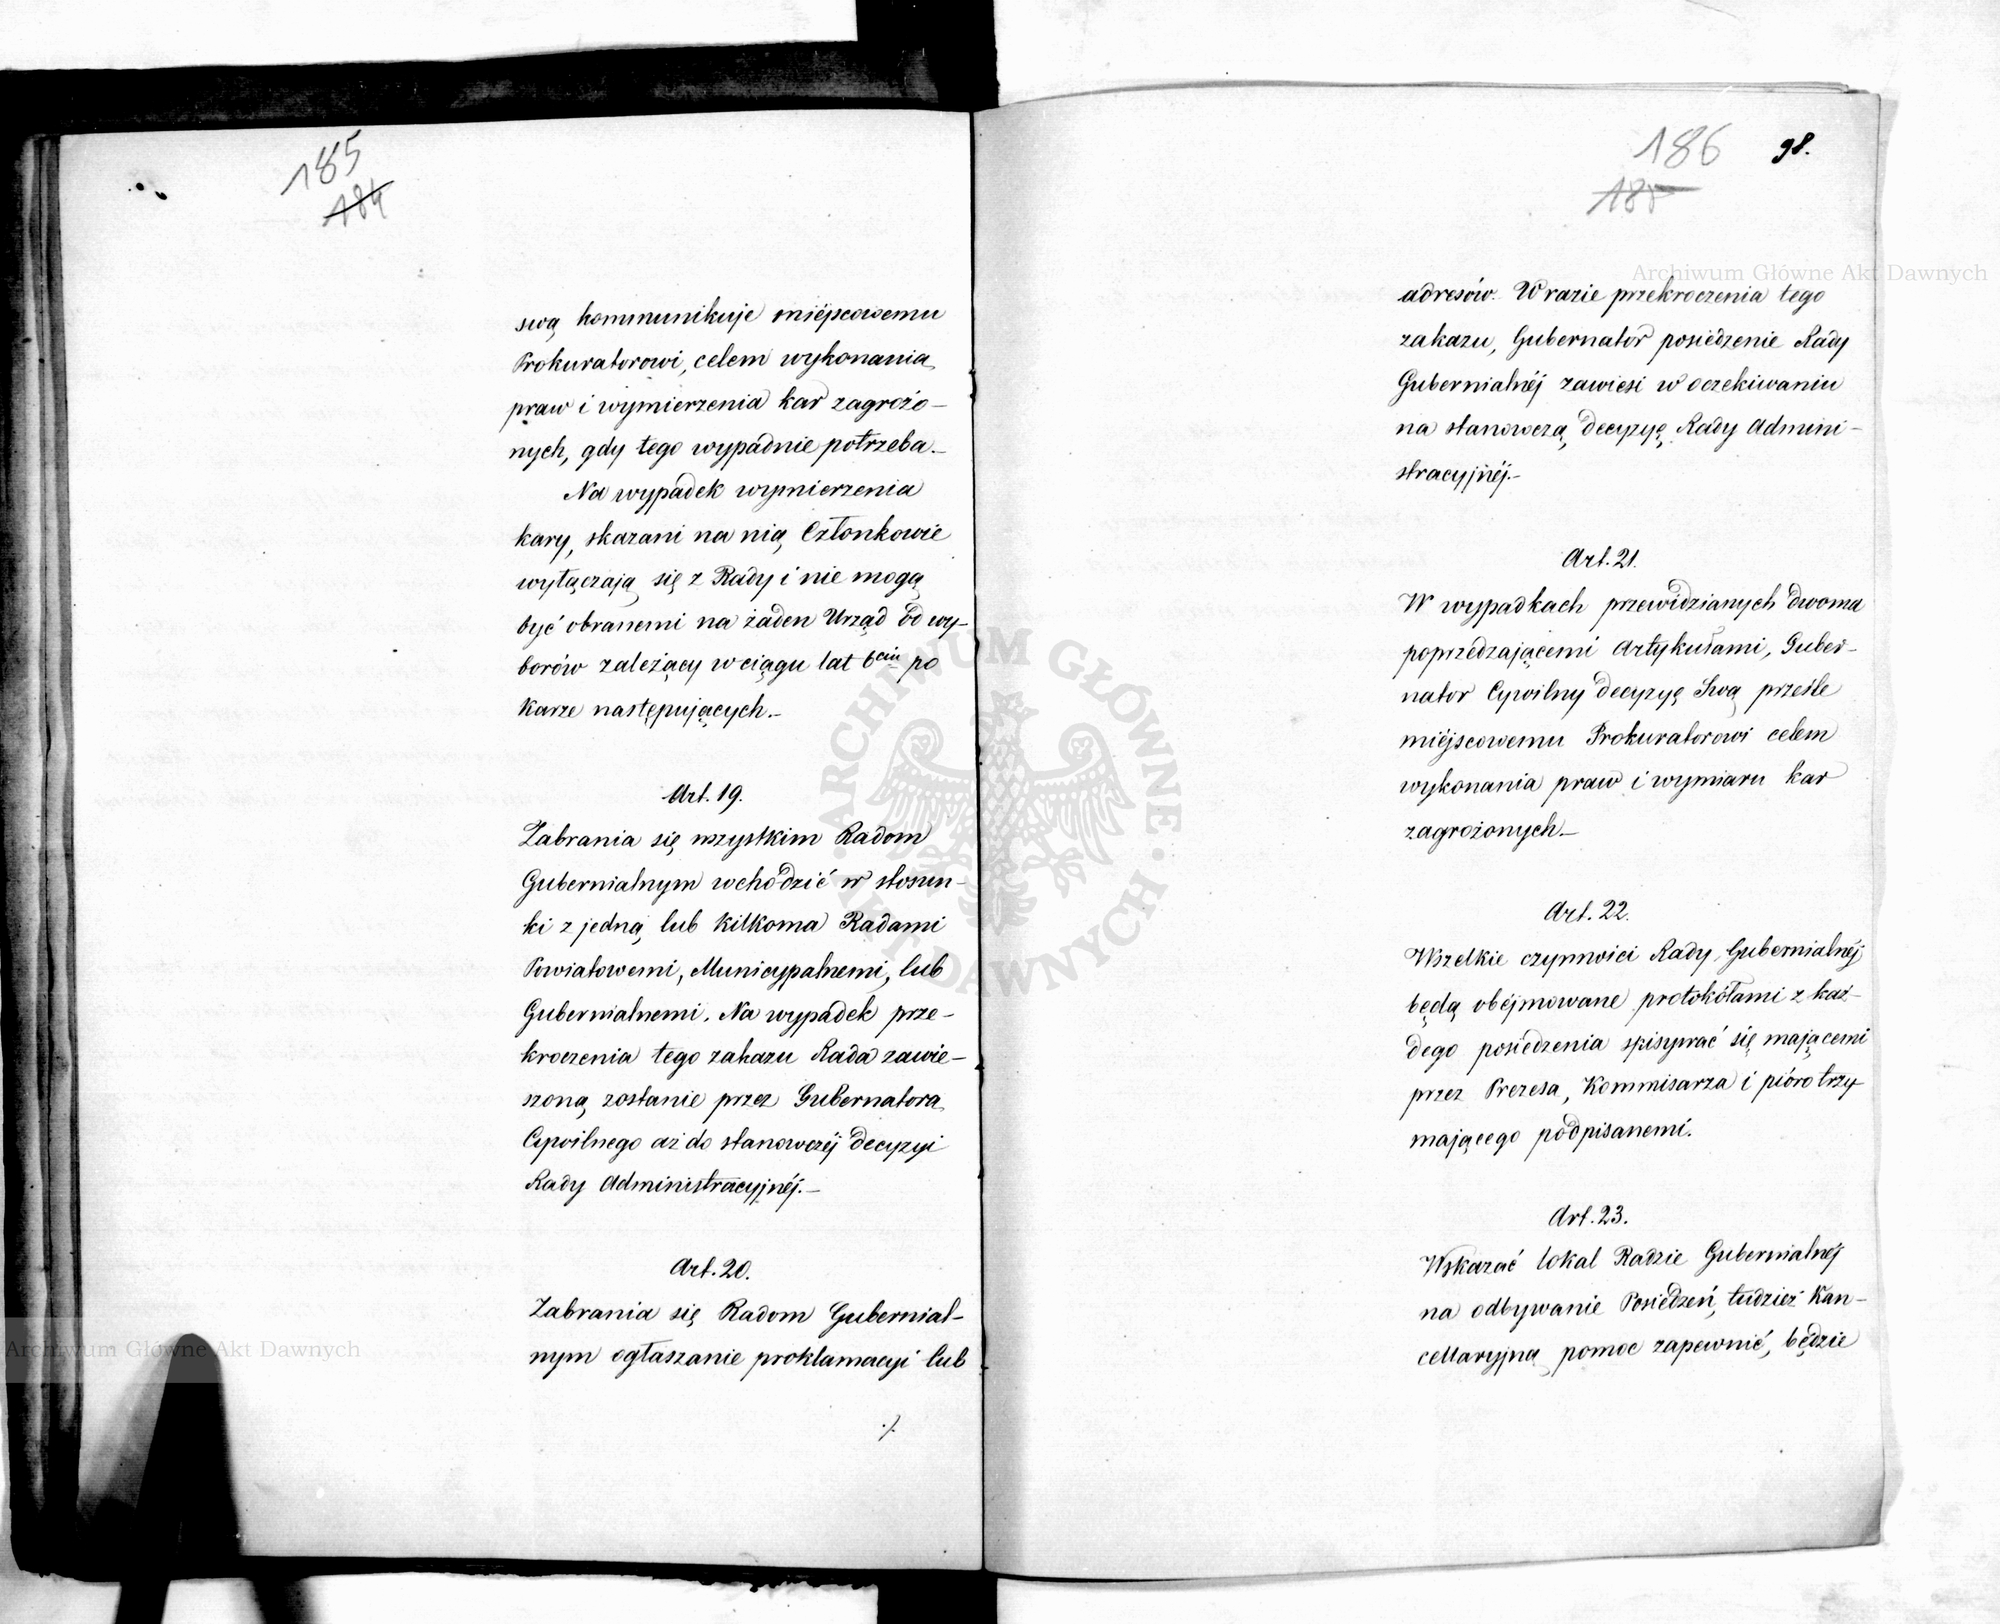 185
184
swą kommunikuje miéjscowemu
Prokuratorowi, celem wykonania
praw i wymierzenia kar zagrożo-
nych, gdy tego wypadnie potrzeba.-
Na wypadek wymierzenia
kary, skazani na nią Członkowie
wyłączają się z Rady i nie mogą
być obranemi na żaden Urząd od wy-
borów zależący w ciągu lat 6ciu po
karze następujących.-
Art. 19.
Zabrania się wszystkim Radom
Gubernialnym wchodzić w stosun-
ki z jedną lub kilkoma Radami
Powiatowemi, Municypalnemi, lub
Gubernialnemi. Na wypadek prze-
kroczenia tego zakazu Rada zawie-
szoną zostanie przez Gubernatora
Cywilnego aż do stanowczéj decyzyi
Rady Administracyjnéj.-
Art. 20.
Zabrania się Radom Gubernial-
nym ogłaszanie proklamacyi lub
./.
186 98.
185
adresów. W razie przekroczenia tego
zakazu, Gubernator posiedzenie Rady
Gubernialnéj zawiesi w oczekiwaniu
na stanowczą decyzyę Rady Admini-
stracyjnéj.-
Art. 21.
W wypadkach przewidzianych dwoma
poprzedzającemi Artykułami, Guber-
nator Cywilny decyzyę Swą prześle
miéjscowemu Prokuratorowi celem
wykonania praw i wymiaru kar
zagrożonych.-
Art. 22.
Wszelkie czynności Rady Gubernialnéj
będą obéjmowane protokółami z każ-
dego posiedzenia spisywać się mającemi
przez Prezesa, Kommisarza i pióro trzy-
mającego podpisanemi.
Art. 23.
Wskazać lokal Radzie Gubernialnéj
na odbywanie Posiedzeń, tudzież Kan-
cellaryjną pomoc zapewnić, będzie
Archiwum Główne Akt Dawnych
Archiwum Główne Akt Dawnych
ARCHIWUM GŁÓWNE · AKT DAWNYCH ·